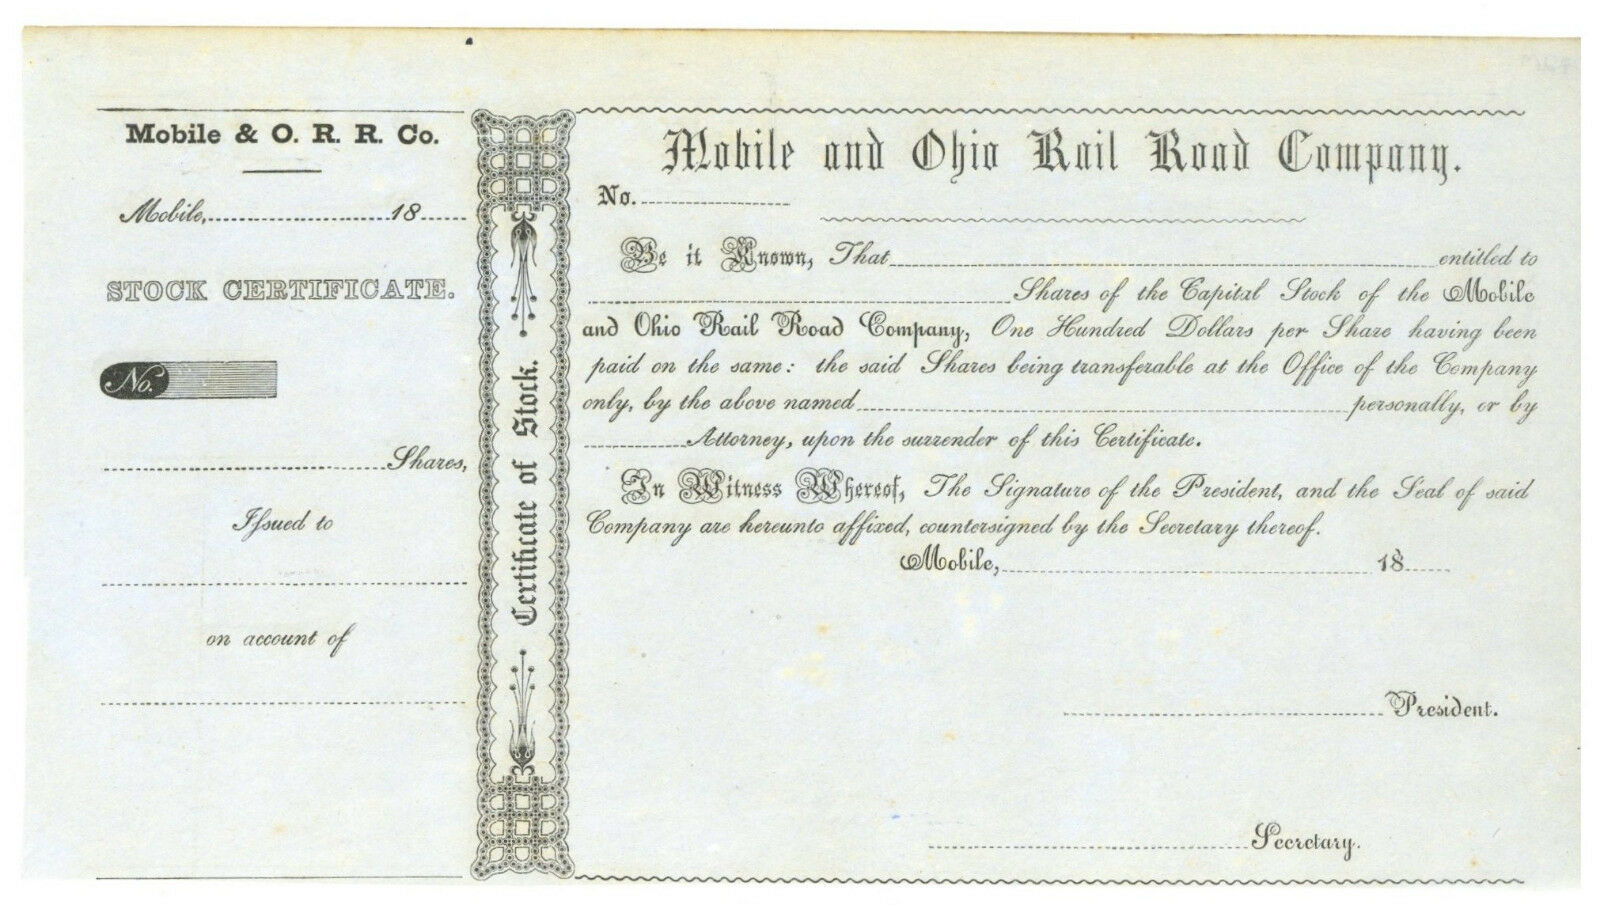 Mobile & O. R. R. Co.
Mobile, 18
STOCK CERTIFICATE.
No.
Shares,
Issued to
on account of
Certificate of Stock.
Mobile and Ohio Rail Road Company.
No.
Be it Known, That entitled to
Shares of the Capital Stock of the Mobile
and Ohio Rail Road Company, One Hundred Dollars per Share having been
paid on the same: the said Shares being transferable at the Office of the Company
only, by the above named personally, or by
Attorney, upon the surrender of this Certificate.
In Witness Whereof, The Signature of the President, and the Seal of said
Company are hereunto affixed, countersigned by the Secretary thereof.
Mobile, 18
President.
Secretary.